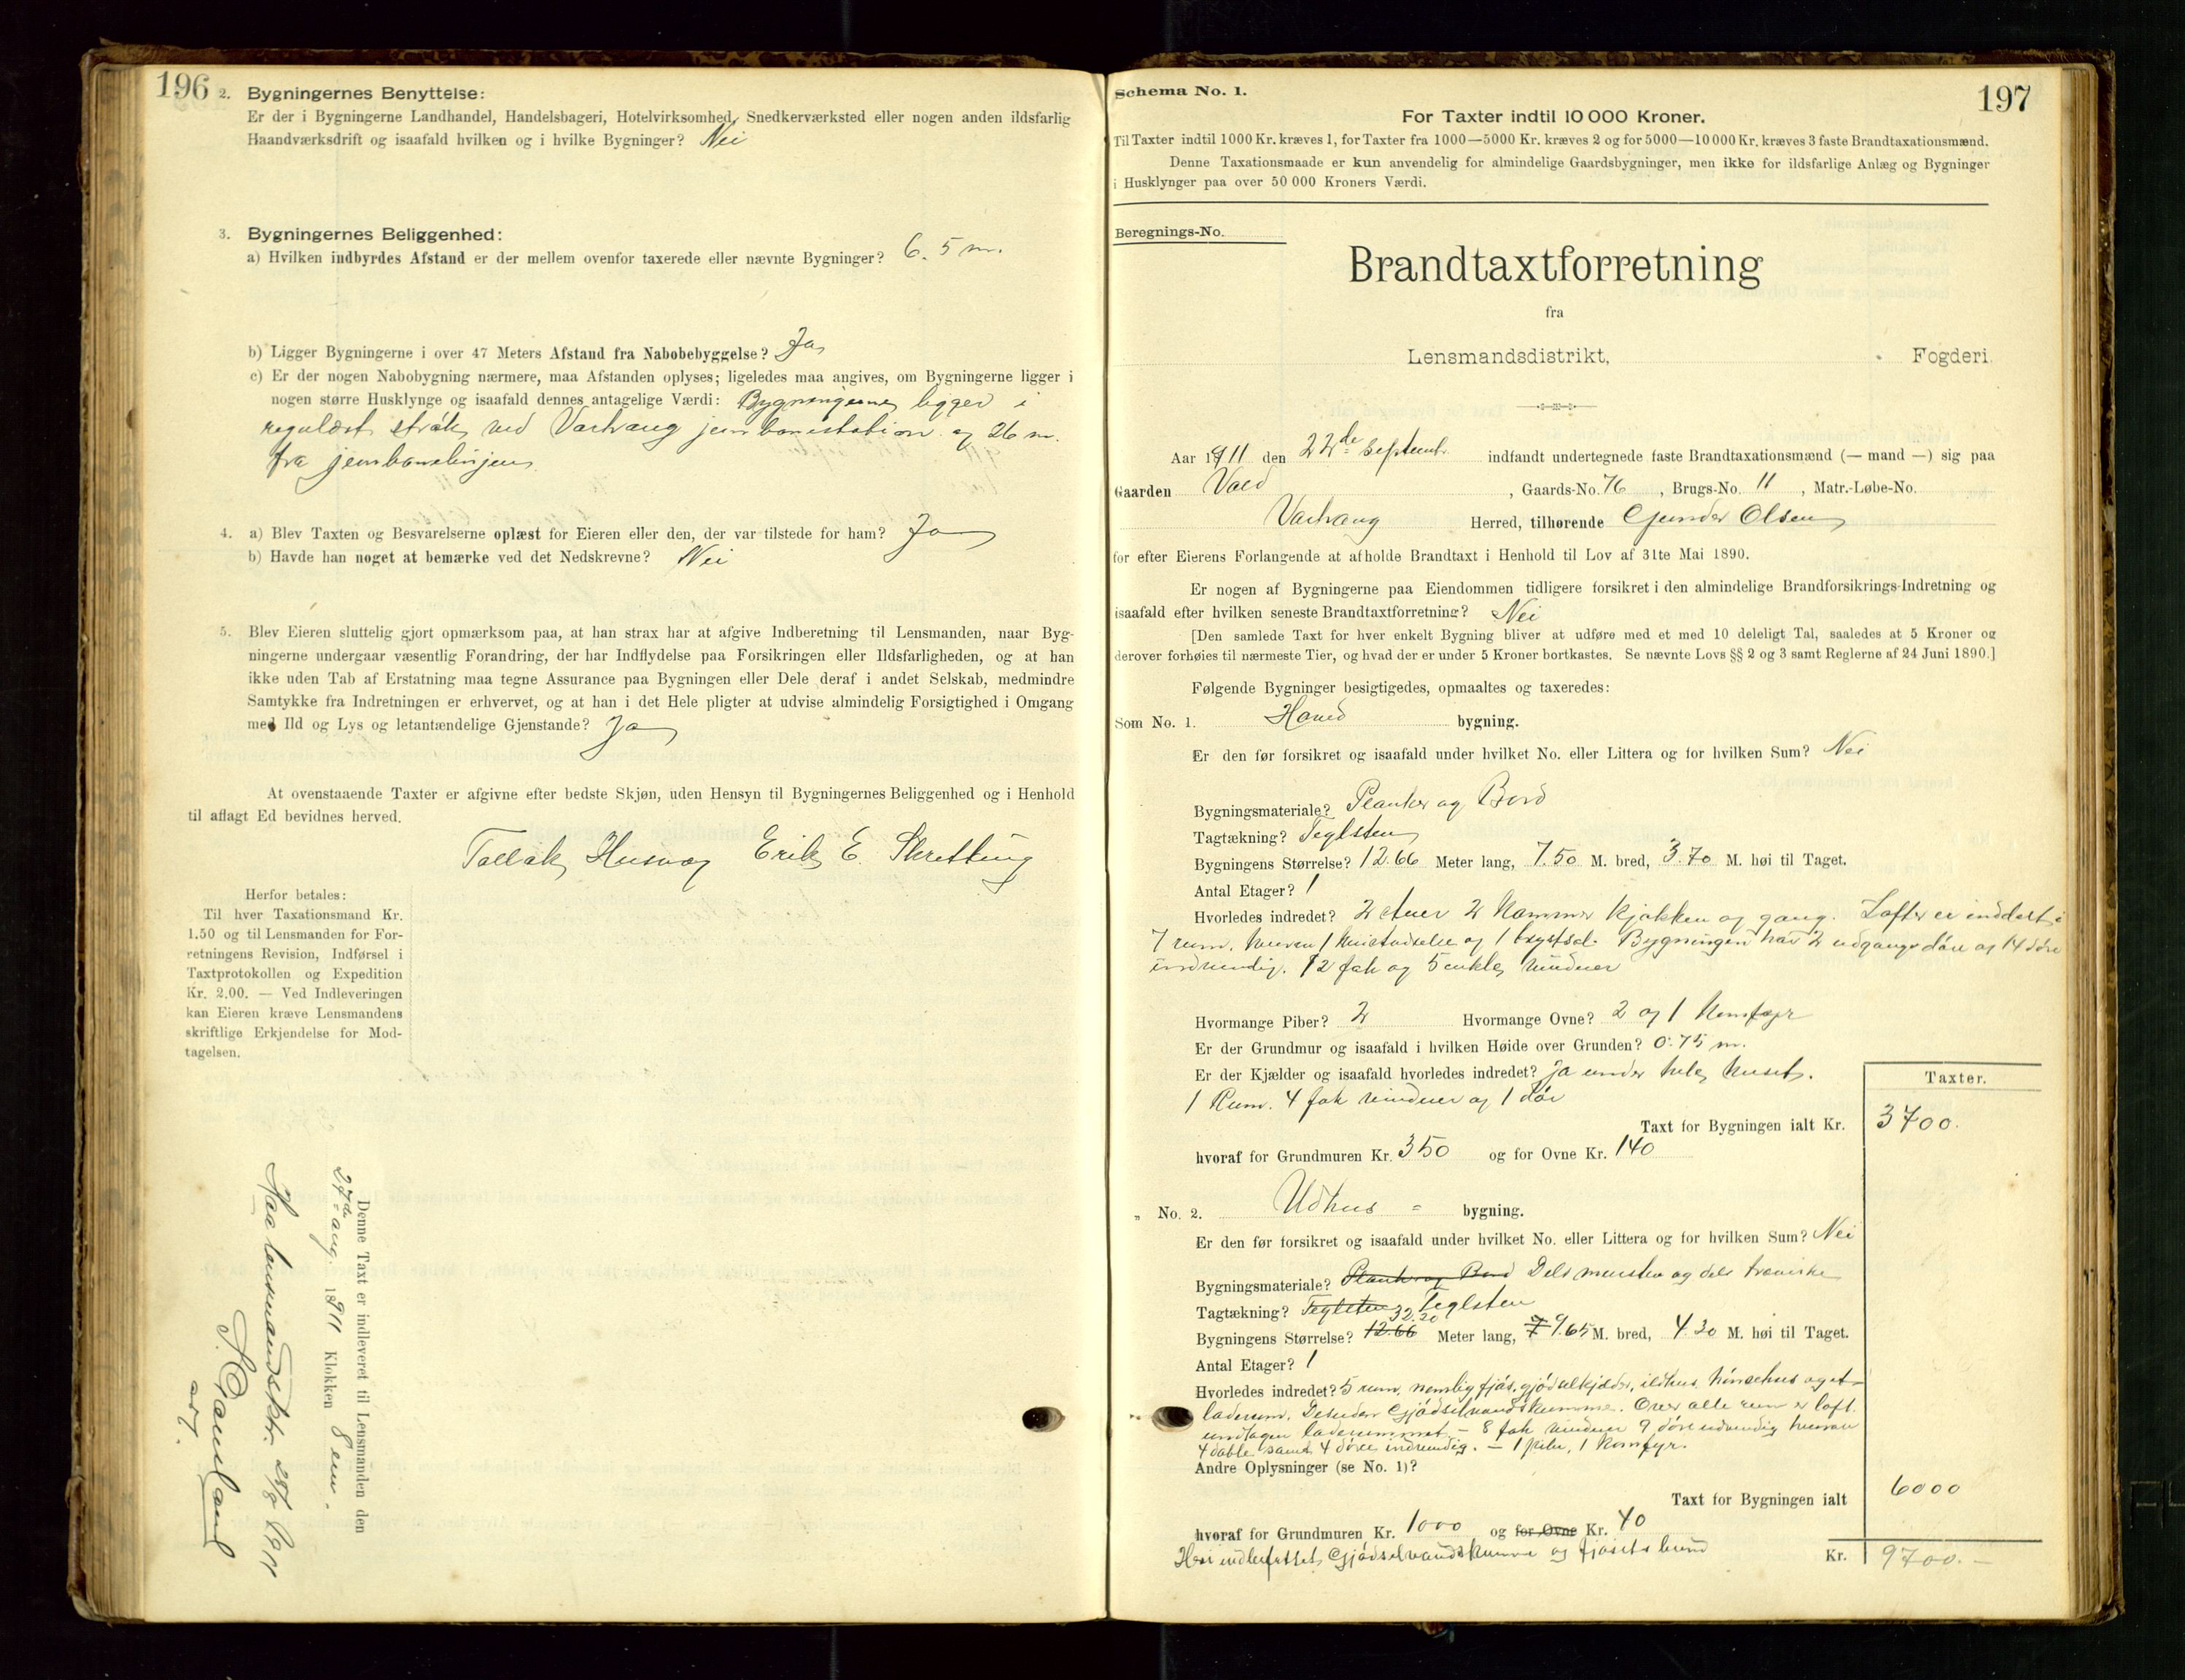 196
2. Bygningernes Benyttelse:
Er der i Bygningerne Landhandel, Handelsbageri, Hotelvirksomhed, Snedkerværksted eller nogen anden ildsfarlig
Haandværksdrift og isaafald hvilken og i hvilke Bygninger? Nei
3. Bygningernes Beliggenhed:
a) Hvilken indbyrdes Afstand er der mellem ovenfor taxerede eller nævnte Bygninger? 6.5 m.
b) Ligger Bygningerne i over 47 Meters Afstand fra Nabobebyggelse? Ja
c) Er der nogen Nabobygning nærmere, maa Afstanden oplyses; ligeledes maa angives, om Bygningerne ligger i
nogen større Husklynge og isaafald dennes antagelige Værdi: Bygningerne ligger i
regulært strøk ved Varhaug jernbanestation og 26 m.
fra jernbanelinjen
4. a) Blev Taxten og Besvarelserne oplæst for Eieren eller den, der var tilstede for ham? Ja
b) Havde han noget at bemærke ved det Nedskrevne? Nei
5. Blev Eieren sluttelig gjort opmærksom paa, at han strax har at afgive Indberetning til Lensmanden, naar Byg-
ningerne undergaar væsentlig Forandring, der har Indflydelse paa Forsikringen eller Ildsfarligheden, og at han
ikke uden Tab af Erstatning maa tegne Assurance paa Bygningen eller Dele deraf i andet Selskab, medmindre
Samtykke fra Indretningen er erhvervet, og at han i det Hele pligter at udvise almindelig Forsigtighed i Omgang
med Ild og Lys og letantændelige Gjenstande? Ja
At ovenstaaende Taxter er afgivne efter bedste Skjøn, uden Hensyn til Bygningernes Beliggenhed og i Henhold
til aflagt Ed bevidnes herved.
Tollak Husvæg Erik E. Skretting
Herfor betales:
Til hver Taxationsmand Kr.
1.50 og til Lensmanden for For-
retningens Revision, Indførsel i
Taxtprotokollen og Expedition
Kr. 2.00. — Ved Indleveringen
kan Eieren kræve Lensmandens
skriftlige Erkjendelse for Mod-
tagelsen.
Denne Taxt er indleveret til Lensmanden den
27de aug. 1911 Klokken 8 em.
Haa lensmandsktr. 28/8 1911
197
Schema No. 1.
For Taxter indtil 10 000 Kroner.
Til Taxter indtil 1000 Kr. kræves 1, for Taxter fra 1000—5000 Kr. kræves 2 og for 5000—10 000 Kr. kræves 3 faste Brandtaxationsmænd.
Denne Taxationsmaade er kun anvendelig for almindelige Gaardsbygninger, men ikke for ildsfarlige Anlæg og Bygninger
i Husklynger paa over 50 000 Kroners Værdi.
Beregnings-No.
Brandtaxtforretning
fra
Lensmandsdistrikt, Fogderi.
Aar 1911 den 22de Septemb. indfandt undertegnede faste Brandtaxationsmænd (— mand —) sig paa
Gaarden , Gaards-No. 76 , Brugs-No. 11 , Matr.-Løbe-No.
Varhaug Herred, tilhørende Gunder Olsen
for efter Eierens Forlangende at afholde Brandtaxt i Henhold til Lov af 31te Mai 1890.
Er nogen af Bygningerne paa Eiendommen tidligere forsikret i den almindelige Brandforsikrings-Indretning og
isaafald efter hvilken seneste Brandtaxtforretning? Nei
[Den samlede Taxt for hver enkelt Bygning bliver at udføre med et med 10 deleligt Tal, saaledes at 5 Kroner og
derover forhøies til nærmeste Tier, og hvad der er under 5 Kroner bortkastes. Se nævnte Lovs §§ 2 og 3 samt Reglerne af 24 Juni 1890.]
Følgende Bygninger besigtigedes, opmaaltes og taxeredes:
Som No. 1. Hoved bygning.
Er den før forsikret og isaafald under hvilket No. eller Littera og for hvilken Sum? Nei
Bygningsmateriale? Planker og Bord
Tagtækning? Teglsten
Bygningens Størrelse? 12.66 Meter lang, 7.50 M. bred, 3.70 M. høi til Taget.
Antal Etager? 1
Hvorledes indredet? 2 stuer 2 kammer kjøkken og gang. Loftet er inddelt i
7 rum, hvorav 1 og 1 Bygningen har 2 udgangsdøre og 14 døre
indvendig. 12 fak og 5 enkle vinduer
Hvormange Piber? 2 Hvormange Ovne? 2 og 1 komfyr
Er der Grundmur og isaafald i hvilken Høide over Grunden? 0.75 m.
Er der Kjælder og isaafald hvorledes indredet? ja under hele huset.
1 Rum. 4 fak vinduer og 1 dør
Taxter.
Taxt for Bygningen ialt Kr. 3700.
hvoraf for Grundmuren Kr. 350 og for Ovne Kr. 140
„ No. 2. Udhus = bygning.
Er den før forsikret og isaafald under hvilket No. eller Littera og for hvilken Sum? Nei
Bygningsmateriale? Planker og Bord Dels mursten og dels trævirke
Tagtækning? Teglsten Teglsten
Bygningens Størrelse? 12.66 32.20 Meter lang, 7 9.65 M. bred, 4.30 M. høi til Taget.
Antal Etager? 1
Hvorledes indredet? 5 rum, nemlig fjøs, gjødselkjelder, ildhus, hønsehus og et
laderum. Desuden Gjødselvandskumme. Over alle rum er loft
undtagen laderummet — 8 fak vinduer 9 døre udvendig hvorav
4 doble samt 4 døre indvendig. — 1 pibe, 1 komfyr.
Andre Oplysninger (se No. 1)?
Taxt for Bygningen ialt 6000
hvoraf for Grundmuren Kr. 1000 og for Ovne Kr. 40
Heri indbefattet Gjødselvandskumme og fjøsets bund
Kr. 9700.—